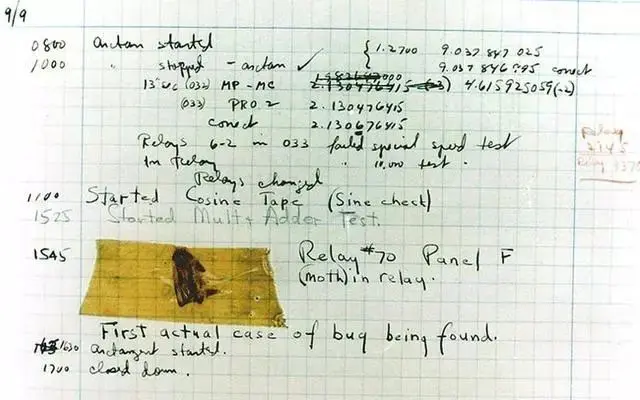 9/9
0800 arctan started { 1.2700 9.037 847 025
1000 " stopped - arctan ✓ 9.037 846 995 correct
13" UC (032) MP - MC 2.130476415 (-3) 4.615925059(-2)
(033) PRO 2 2.130476415
correct 2.130676415
Relays 6-2 in 033 failed special speed test
In Relay " 10,000 test .
Relays changed
Relay
2145
Relay 3370
1100 Started Cosine Tape (Sine check)
1525 Started Mult + Adder Test.
1545 Relay #70 Panel F
(moth) in relay.
First actual case of bug being found.
1630 arctangent started.
1700 closed down.